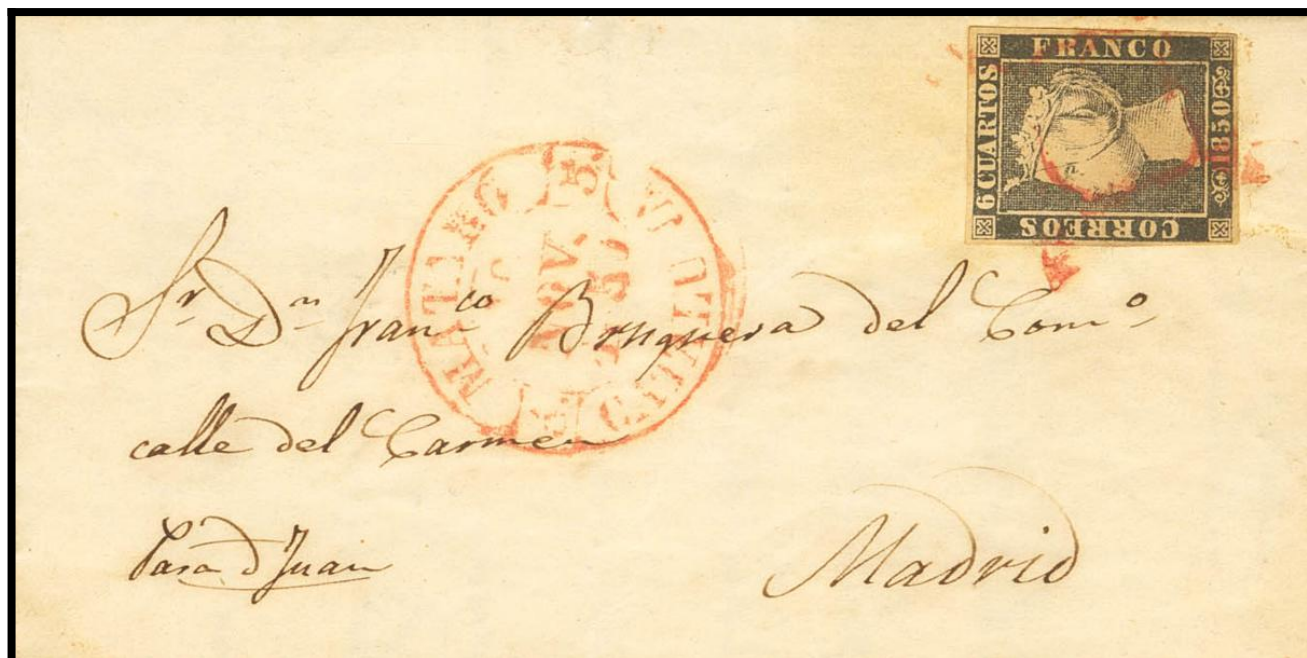 FRANCO
6 CUARTOS
1850
CORREOS
5
NOV.
Sr. Dn. Franco Bruguera del Como
calle del Carmen
Para D Juan
Madrid